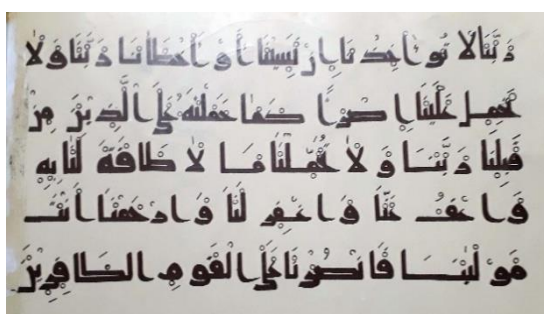 رَبَّنَا لَا تُؤَاخِذْنَا إِنْ نَسِينَا أَوْ أَخْطَأْنَا رَبَّنَا وَلَا
تَحْمِلْ عَلَيْنَا إِصْرًا كَمَا حَمَلْتَهُ عَلَى الَّذِينَ مِنْ
قَبْلِنَا رَبَّنَا وَلَا تُحَمِّلْنَا مَا لَا طَاقَةَ لَنَا بِهِ
وَاعْفُ عَنَّا وَاغْفِرْ لَنَا وَارْحَمْنَا أَنْتَ
مَوْلَىٰنَا فَانْصُرْنَا عَلَى الْقَوْمِ الْكَافِرِينَ